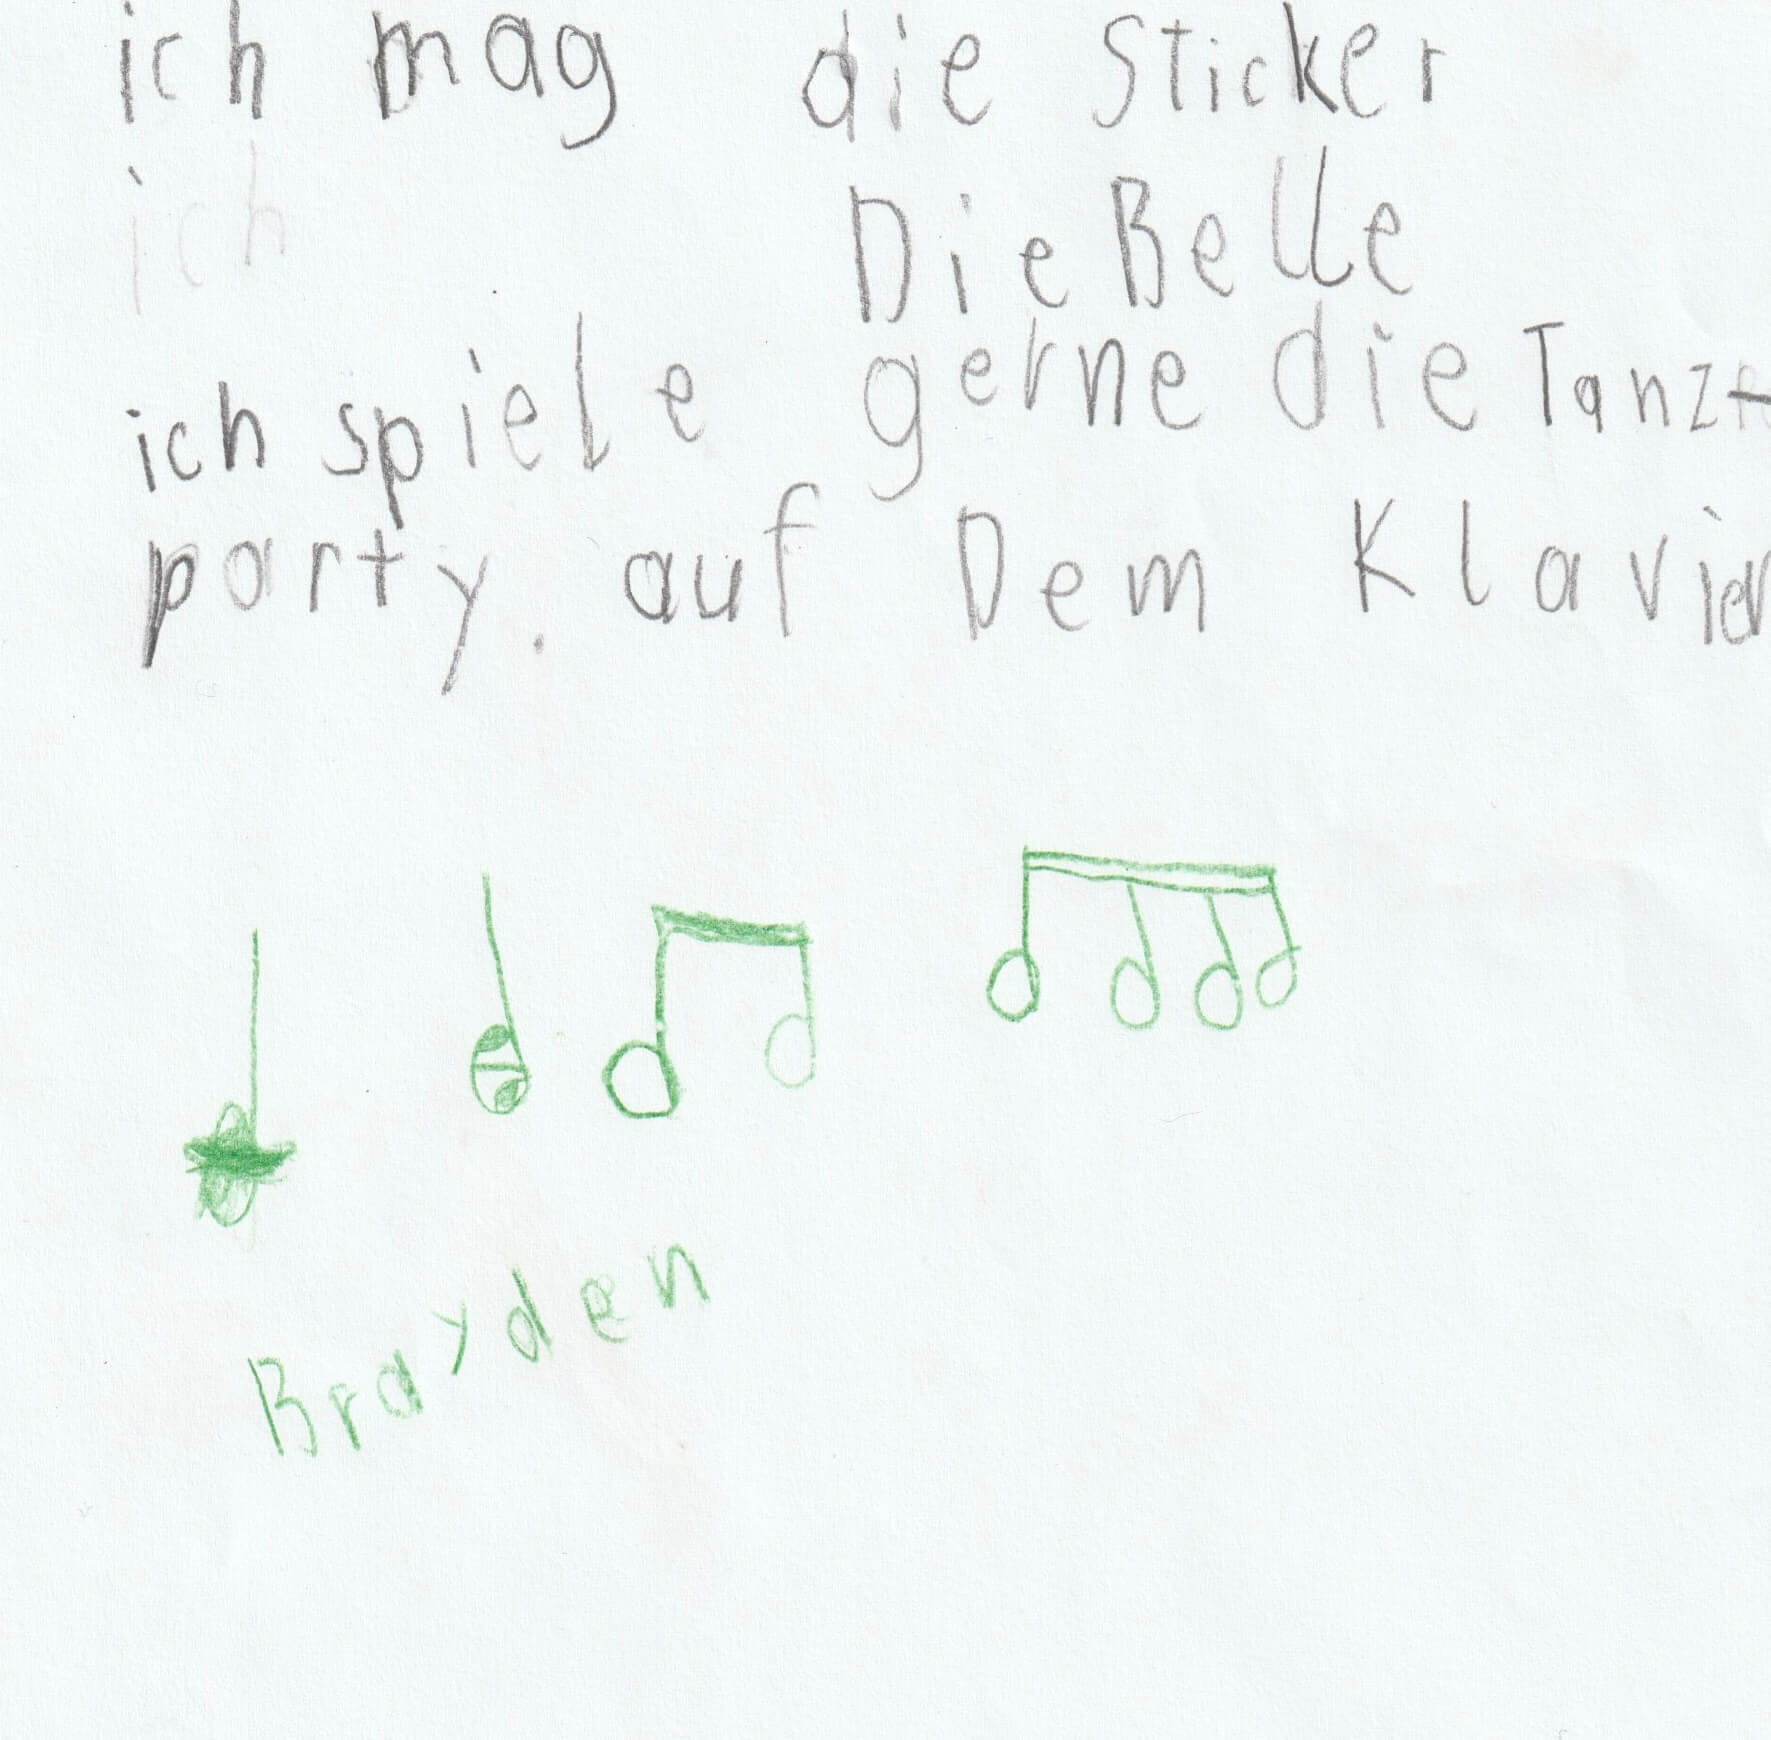 ich mag die Sticker
ich Die Belle
ich spiele gerne die Tanz
party. auf Dem Klavier
Brayden